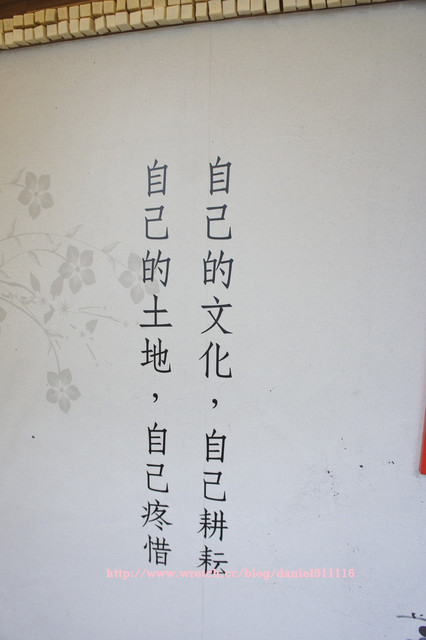 自己的文化，自己耕耘
自己的土地，自己疼惜
http://www.wretch.cc/blog/daniel811116